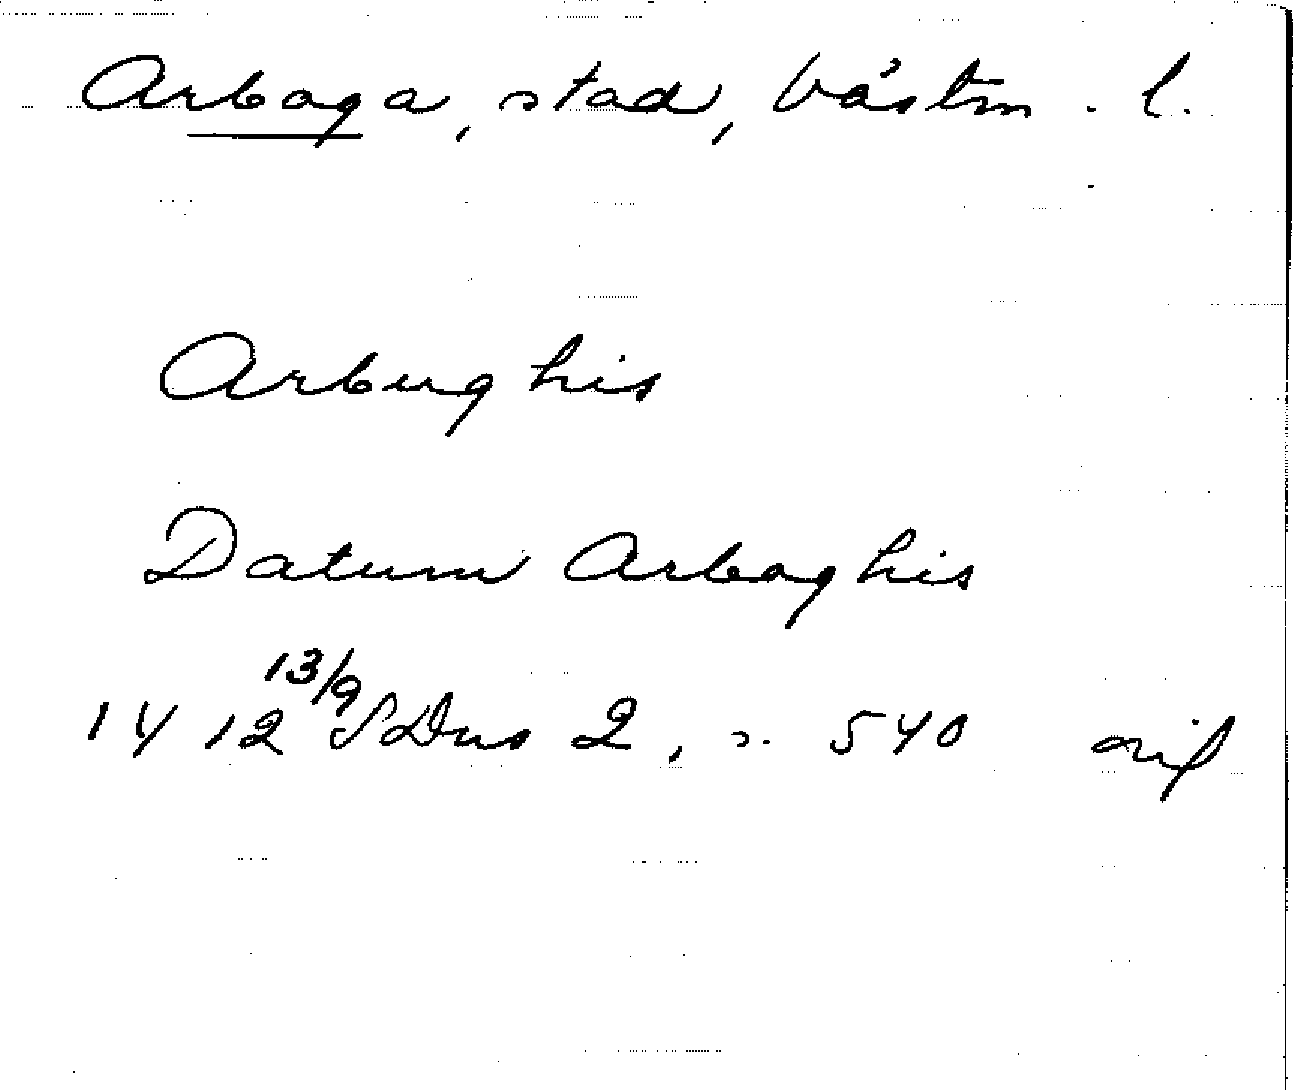 Arboga, stad, Västm. l.
Arbug his
Datum Arbog his
1412 13/9 SDns 2, s. 540 orig